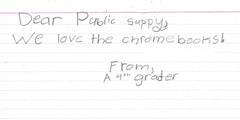 Dear Public supply,
We love the chromebooks!
From,
A 4th grader